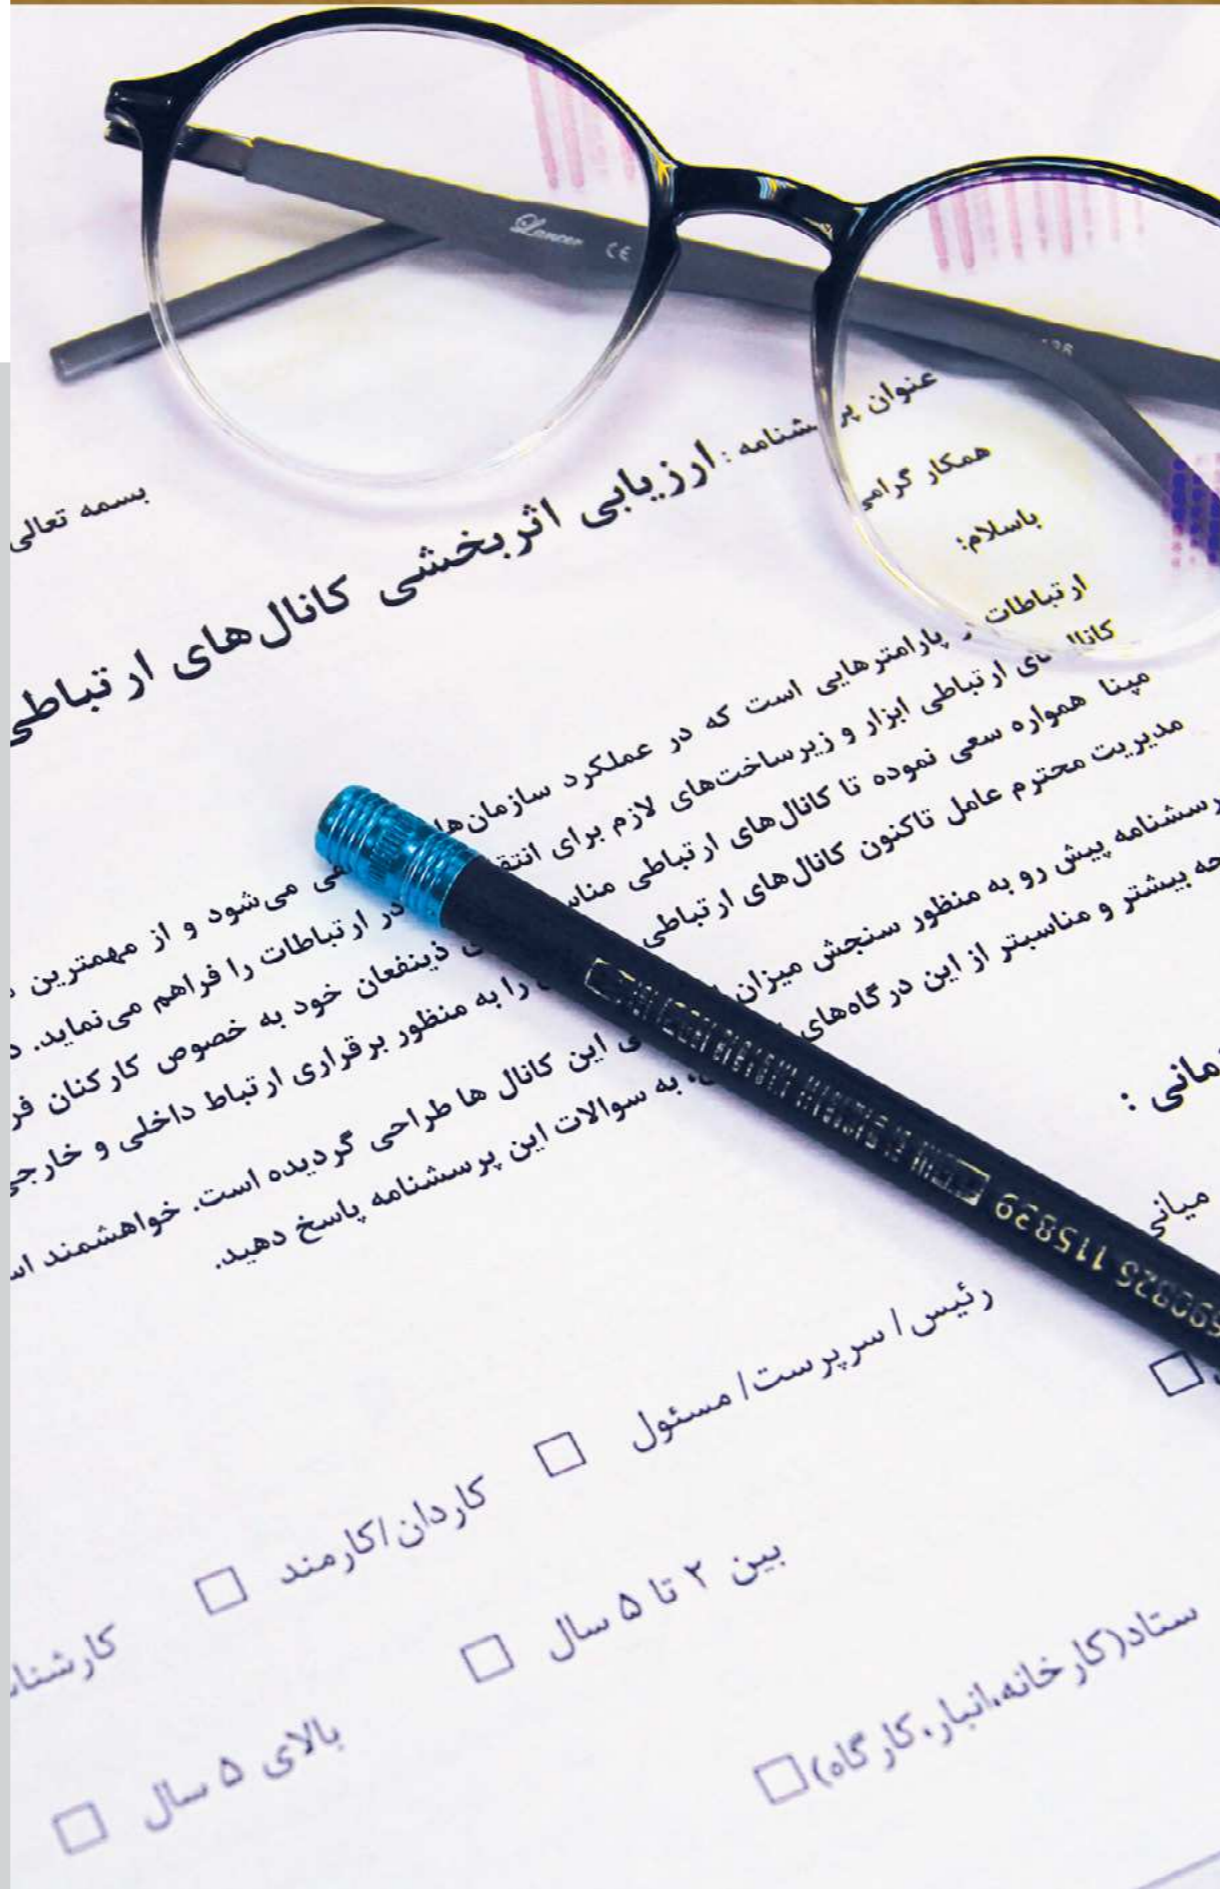 Lancer CE
بسمه تعالی
عنوان پرسشنامه : ارزیابی اثربخشی کانال‌های ارتباطی
همکار گرامی
باسلام:
ارتباطات پارامترهایی است که در عملکرد سازمان‌ها می‌شود و از مهمترین
کانال‌های ارتباطی ابزار و زیرساخت‌های لازم برای در ارتباطات را فراهم می‌نماید.
مپنا همواره سعی نموده تا کانال‌های ارتباطی ذینفعان خود به خصوص کارکنان
مدیریت محترم عامل تاکنون کانال‌های ارتباطی را به منظور برقراری ارتباط داخلی و خارجی
پیش رو به منظور سنجش میزان این کانال ها طراحی گردیده است. خواهشمند
بیشتر و مناسبتر از این درگاه‌های به سوالات این پرسشنامه پاسخ دهید.
میانی
رئیس/ سرپرست/ مسئول
کاردان/کارمند
بین ۲ تا ۵ سال
بالای ۵ سال
ستاد(کارخانه،انبار،کارگاه)
115839